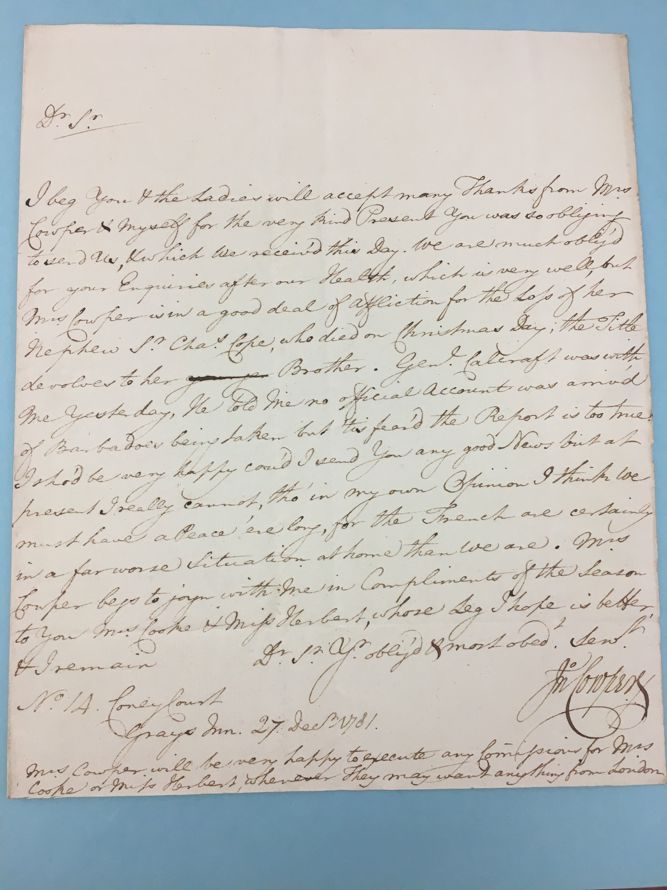 Dr. Sr.
I beg You & the Ladies will accept many Thanks from Mrs
Cowper & Myself for the very kind Present You was so obliging
to send Us, & which We receiv'd this Day. We are much oblig'd
for your Enquiries after our Health, which is very well, but
Mrs Cowper is in a good deal of Affliction for the Loss of her
Nephew Sr. Chas. Cope, who died on Christmas Day; the Title
devolves to her Brother. Genl. Calcraft was with
Me Yesterday, He told Me no official Account was arriv'd
of Barbadoes being taken but 'tis fear'd the Report is too true.
I sho'd be very happy could I send You any good News but at
present I really cannot, tho' in my own Opinion I think We
must have a Peace 'ere long, for the French are certainly
in a far worse Situation at home than We are. Mrs
Cowper begs to joyn with Me in Compliments of the Season
to You Mrs Cooke & Miss Herbert, whose Leg I hope is better,
& I remain Dr. Sr. Yr. oblig'd & most obedt. Servt.
Jno. Cowper
No. 14. Coney Court
Grays Inn. 27. Decr. 1781.
Mrs Cowper will be very happy to execute any Comissions for Mrs
Cooke or Miss Herbert, whenever They may want anything from London